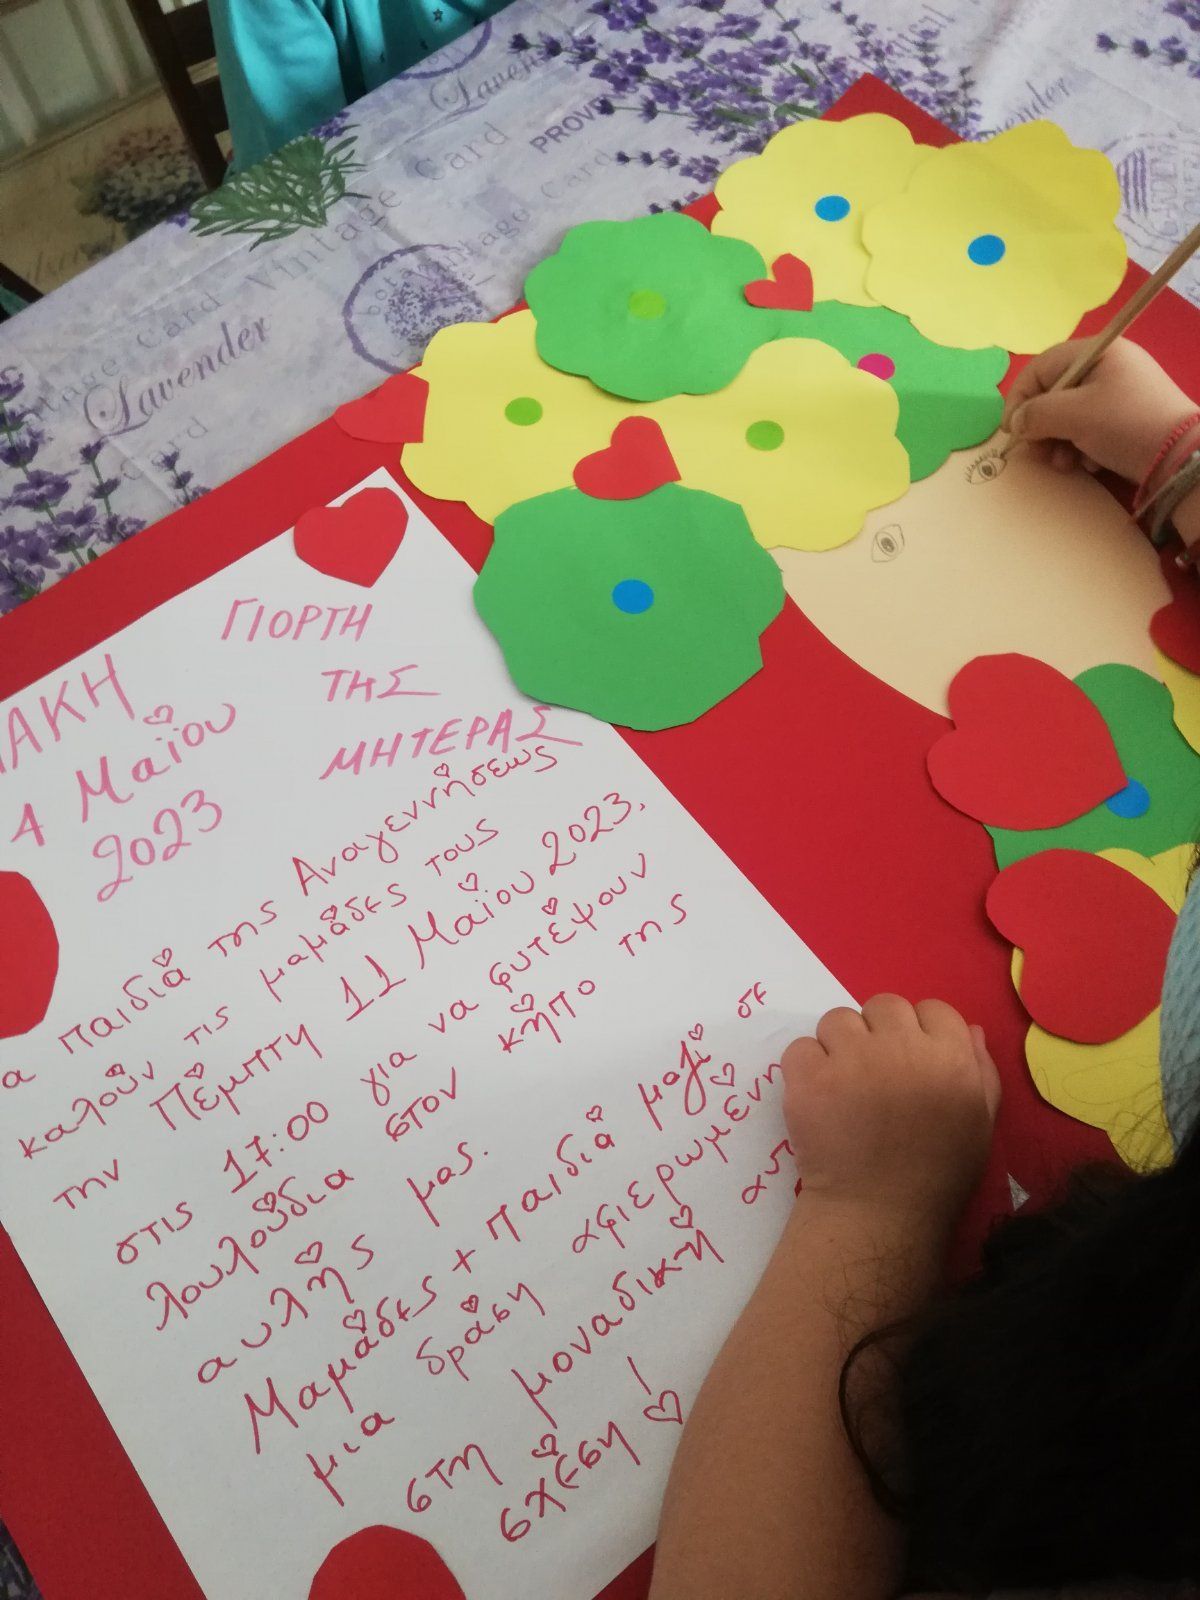 ΓΙΟΡΤΗ
ΤΗΣ
ΜΗΤΕΡΑΣ
4 Μαΐου
2023
α παιδιά της Αναγεννήσεως
καλούν τις μαμάδες τους
την Πέμπτη 11 Μαΐου 2023,
στις 17:00 για να φυτέψουν
λουλούδια στον κήπο της
αυλής μας.
Μαμάδες + παιδιά μαζί σε
μια δράση αφιερωμένη
στη μοναδική
σχέση!
Lavender
Vintage Card
Lavender
Card